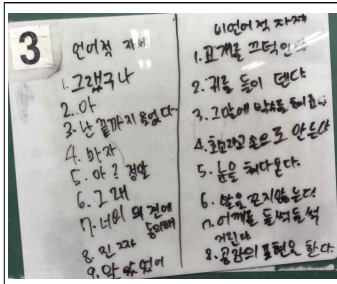 3
언어적 자세
1. 그랬구나
2. 아
3. 난 끝까지 들었다
4. 맞자
5. 아? 정말
6. 그래
7. 너의 의견에
동의해
8. 진짜
9. 알았어
비언어적 자세
1. 고개를 끄덕인다
2. 귀를 돌이 댄다
3. 그만에 박수를
4. 손으로 안는다
5. 눈을 쳐다본다.
6. 않는다
7. 어깨를 들썩들썩
거린다
8. 공감의 표현을 한다